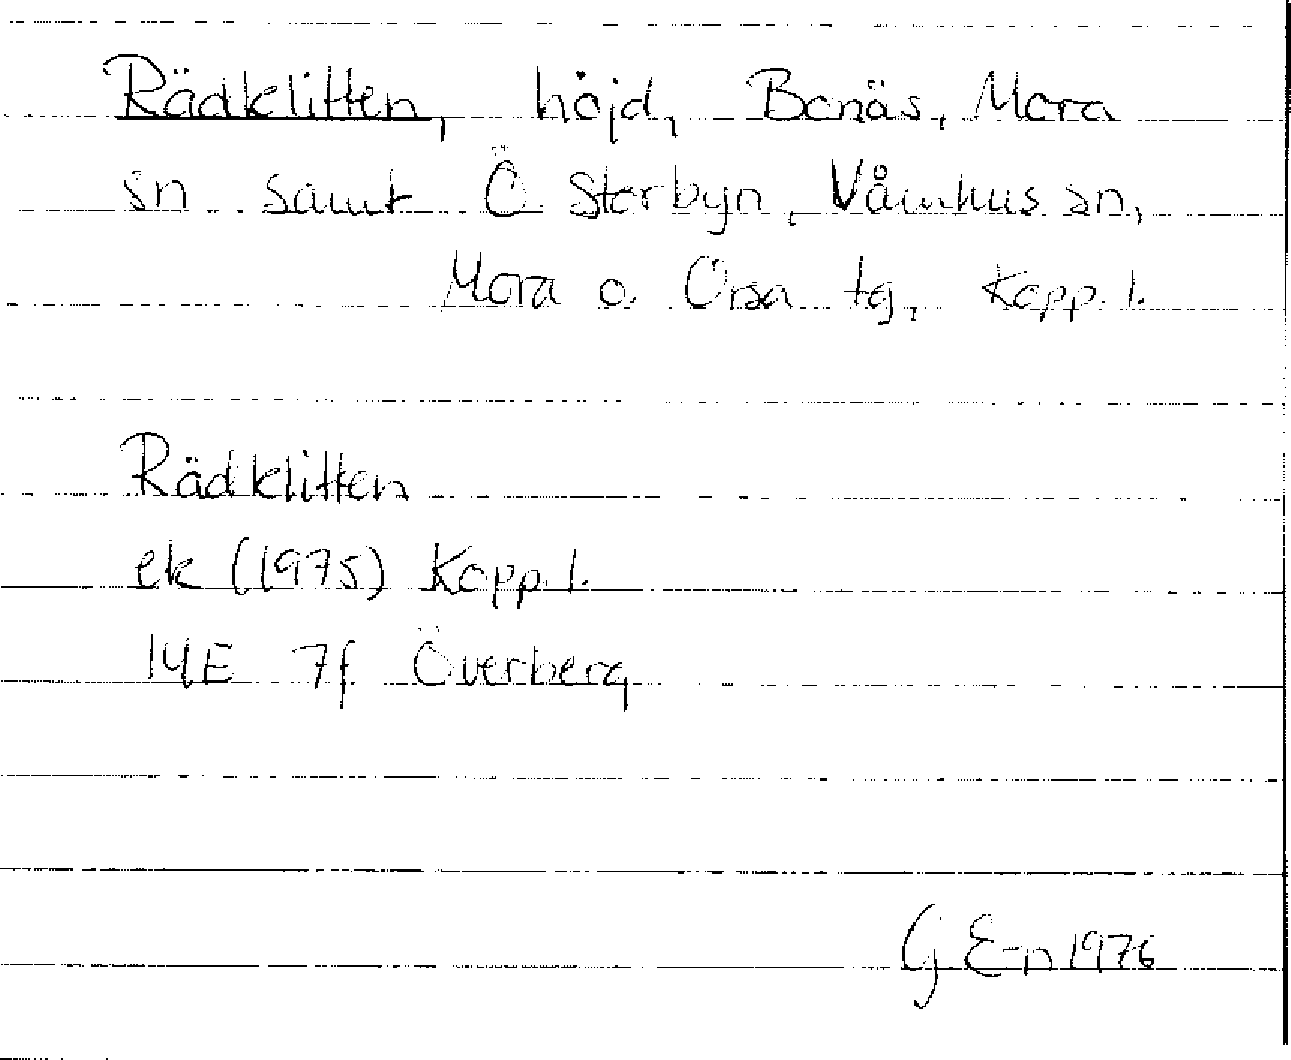 Rädklitten, höjd, Bonäs, Mora
sn samt Ö Storbyn, Våmhus sn,
Mora o. Orsa tg, Kopp. l.
Rädklitten
ek (1975) Kopp. l.
14E 7f Överberg
G E-n 1976